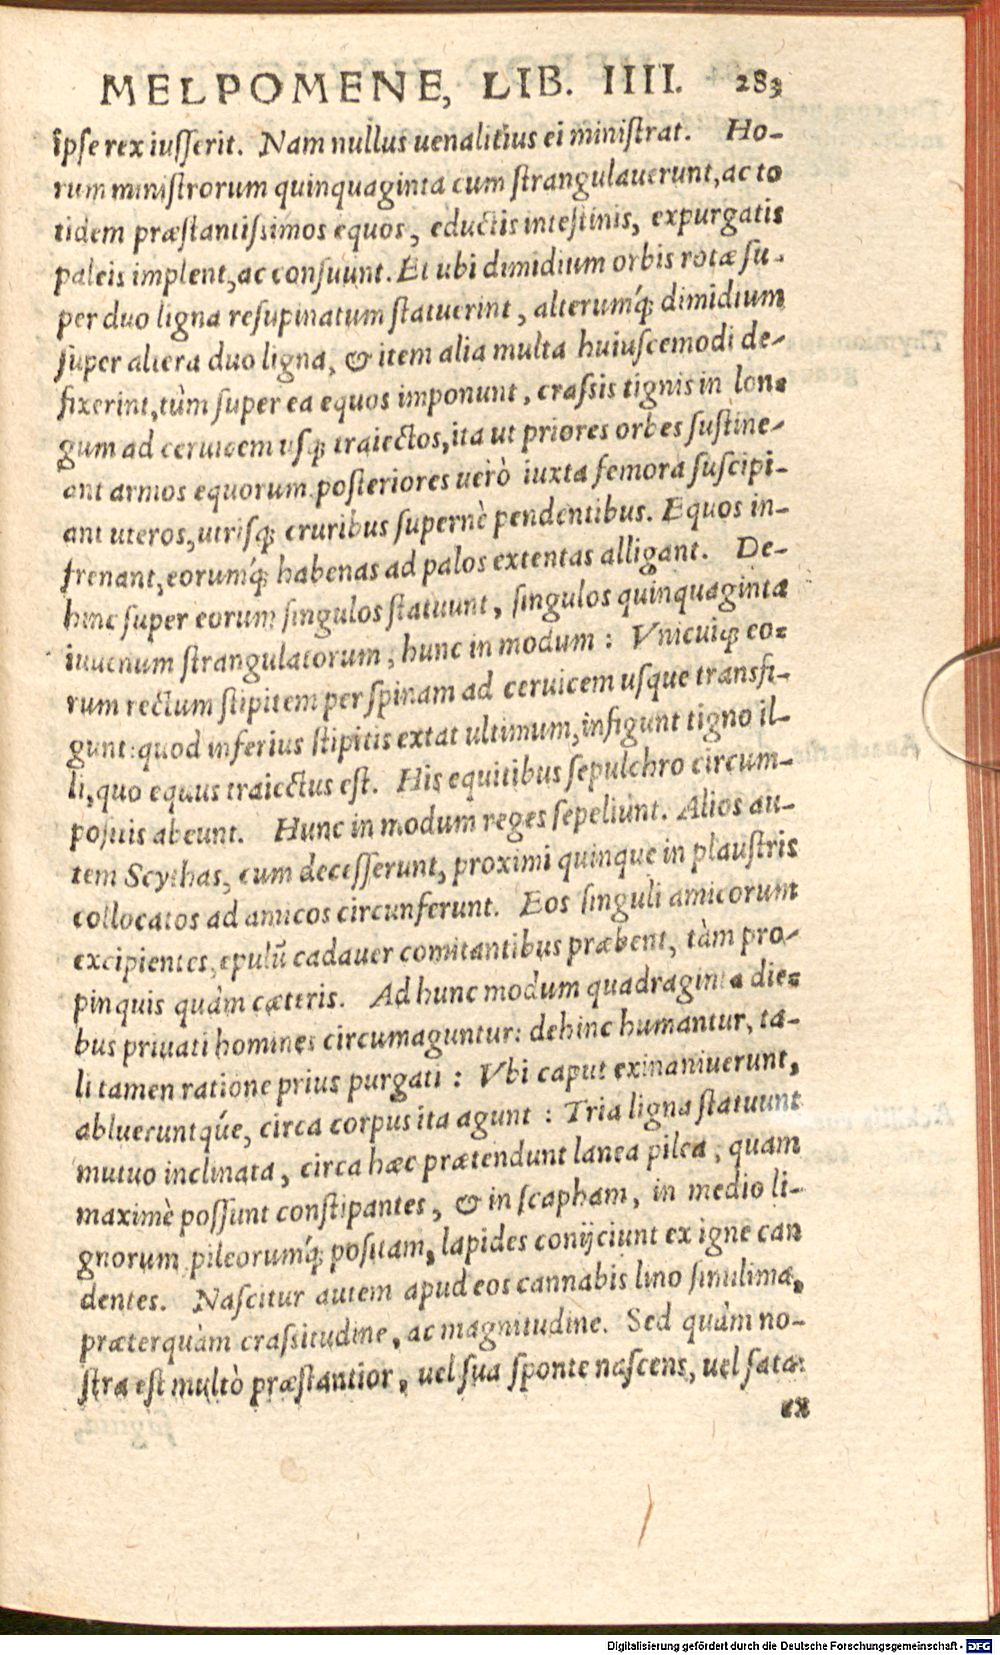 MELPOMENE, LIB. IIII. 283
ipſe rex iuſſerit. Nam nullus uenalitius ei miniſtrat. Ho-
rum miniſtrorum quinquaginta cum ſtrangulauerunt, ac to
tidem præſtantiſsimos equos, eductis inteſtinis, expurgatis
paleis implent, ac conſuunt. Et ubi dimidium orbis rotæ ſu-
per duo ligna reſupinatum ſtatuerint, alterumq́; dimidium
ſuper altera duo ligna, & item alia multa huiuſcemodi de-
fixerint, tùm ſuper ea equos imponunt, craſsis tignis in lon-
gum ad ceruicem uſq; traiectos, ita ut priores orbes ſuſtine-
ant armos equorum. poſteriores uerò iuxta femora ſuſcipi-
ant uteros, utriſq; cruribus ſupernè pendentibus. Equos in-
frenant, eorumq́; habenas ad palos extentas alligant. De-
hinc ſuper eorum ſingulos ſtatuunt, ſingulos quinquaginta
iuuenum ſtrangulatorum, hunc in modum: Vnicuiq; eo-
rum rectum ſtipitem per ſpinam ad ceruicem uſque transfi-
gunt: quod inferius ſtipitis extat ultimum, infigunt tigno il-
li, quo equus traiectus eſt. His equitibus ſepulchro circum-
poſitis abeunt. Hunc in modum reges ſepeliunt. Alios au-
tem Scythas, cum deceſſerunt, proximi quinque in plauſtris
collocatos ad amicos circunferunt. Eos ſinguli amicorum
excipientes, epulū cadauer comitantibus præbent, tàm pro-
pinquis quàm cæteris. Ad hunc modum quadraginta die-
bus priuati homines circumaguntur: dehinc humantur, ta-
li tamen ratione prius purgati: Vbi caput exinaniuerunt,
abluerunt́que, circa corpus ita agunt: Tria ligna ſtatuunt
mutuo inclinata, circa hæc prætendunt lanea pilea, quam
maximè poſſunt conſtipantes, & in ſcapham, in medio li-
gnorum pileorumq́; poſitam, lapides conijciunt ex igne can
dentes. Naſcitur autem apud eos cannabis lino ſimilima,
præterquàm craſsitudine, ac magnitudine. Sed quàm no-
ſtra eſt multò præſtantior, uel ſua ſponte naſcens, uel ſata:
ex
Digitalisierung gefördert durch die Deutsche Forschungsgemeinschaft - DFG